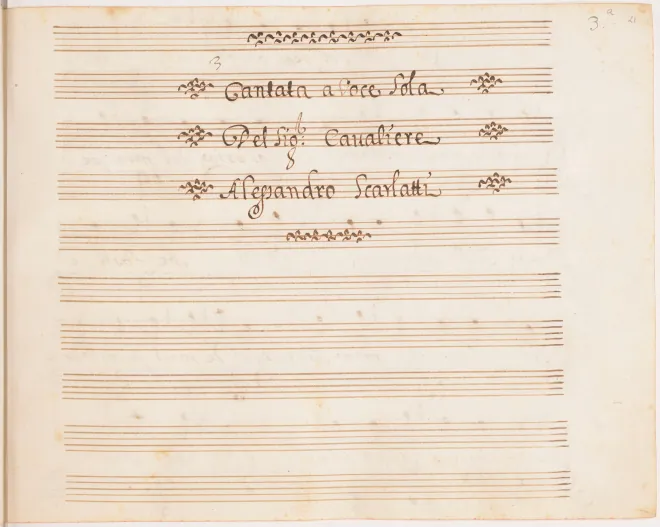 3.a 21
3
Cantata a Voce Sola
Del Sigr: Cavaliere
Alessandro Scarlatti